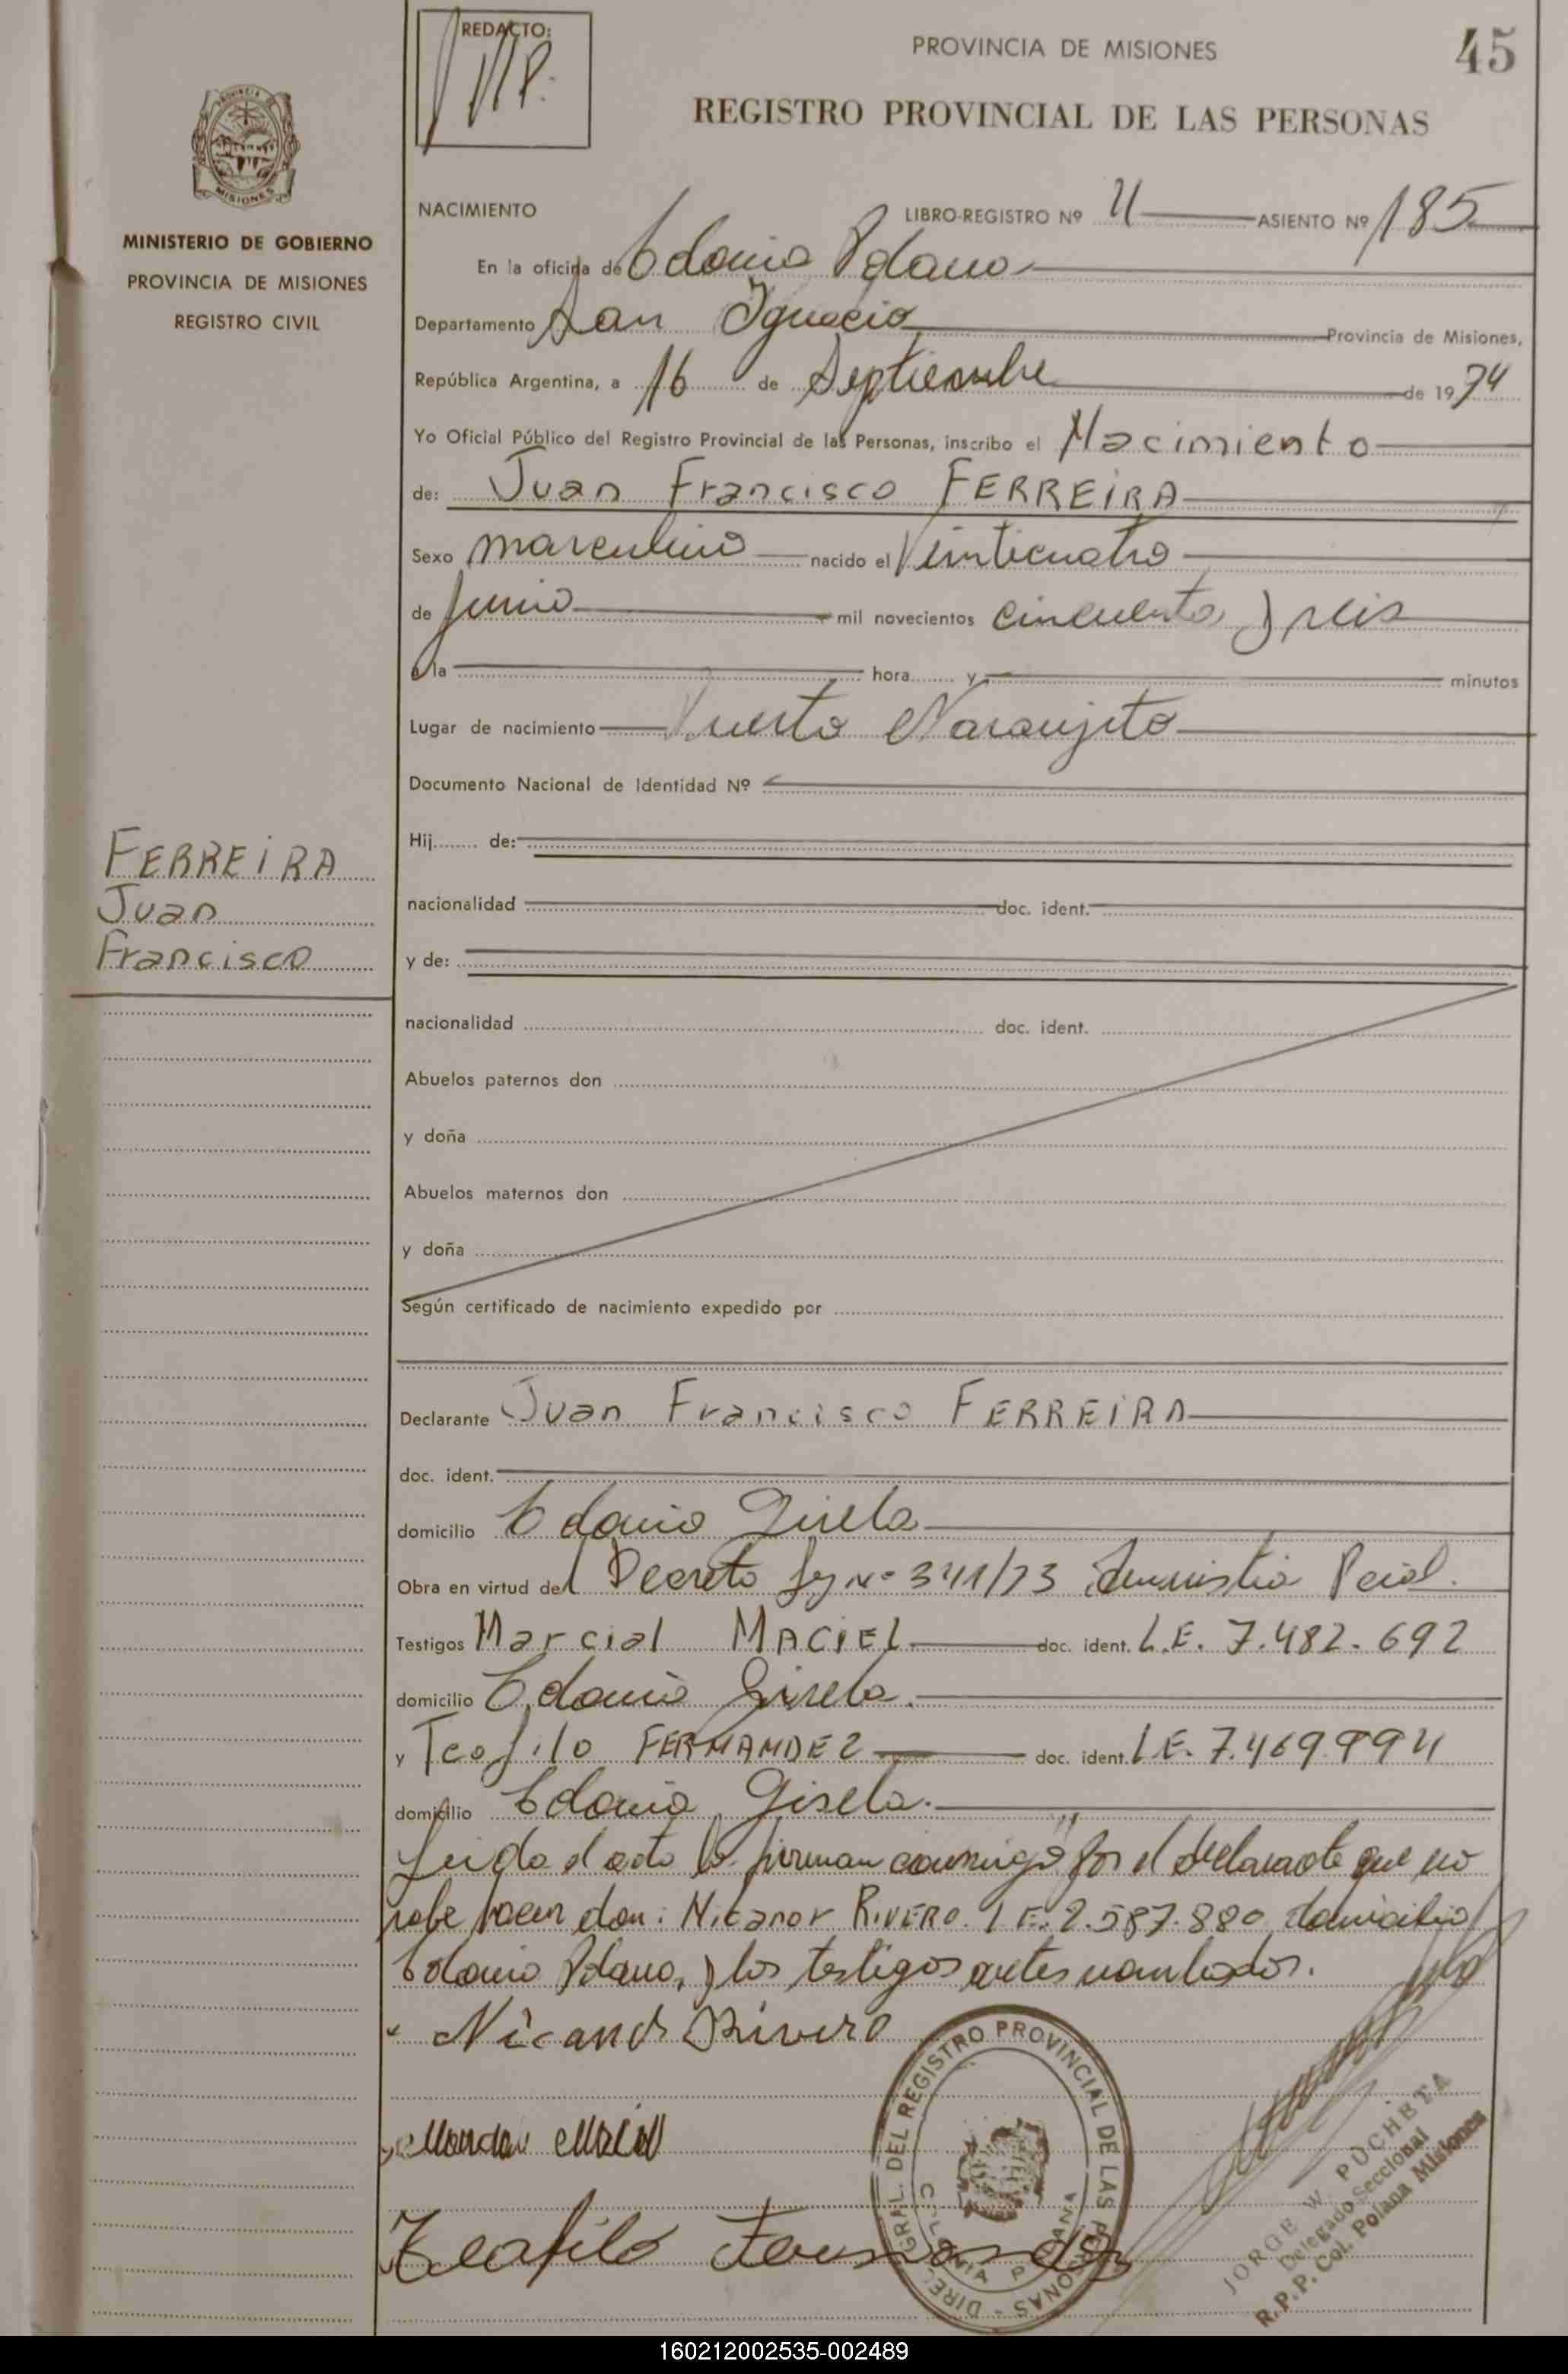 REDACTO:
PROVINCIA DE MISIONES
45
REGISTRO PROVINCIAL DE LAS PERSONAS
MISIONES
MINISTERIO DE GOBIERNO
PROVINCIA DE MISIONES
REGISTRO CIVIL
NACIMIENTO LIBRO-REGISTRO Nº II ASIENTO Nº 185
En la oficina de Colonia Polana
Departamento San Ignacio Provincia de Misiones,
República Argentina, a 16 de Septiembre de 1974
Yo Oficial Público del Registro Provincial de las Personas, inscribo el Nacimiento
de: Juan Francisco FERREIRA
Sexo masculino nacido el Veinticuatro
de Junio mil novecientos cincuenta y seis
a la hora y minutos
Lugar de nacimiento Puerto Naranjito
Documento Nacional de Identidad Nº
Hij de:
nacionalidad doc. ident.
y de:
nacionalidad doc. ident.
Abuelos paternos don
y doña
Abuelos maternos don
y doña
Según certificado de nacimiento expedido por
FERREIRA
Juan
Francisco
Declarante Juan Francisco FERREIRA
doc. ident.
domicilio Colonia Gisela
Obra en virtud del Decreto Ley Nº 341/73 Amnistia Pcial.
Testigos Marcial MACIEL doc. ident. L.E. 7.482.692
domicilio Colonia Gisela.
y Teofilo FERNANDEZ doc. ident. L.E. 7.469.994
domicilio Colonia Gisela.
Leida el acta la firman conmigo "por el declarante que no
sabe hacer don: Nicanor RIVERO. L.E. 2.587.880 domicilio
Colonia Polana, y los testigos antes nombrados.
Nicanor Rivero
Teofilo Fernandez
DIREC. GRAL. DEL REGISTRO PROVINCIAL DE LAS PERSONAS
COLONIA POLANA
JORGE W. PUCHETA
Delegado Seccional
R.P.P. Col. Polana Misiones
160212002535-002489